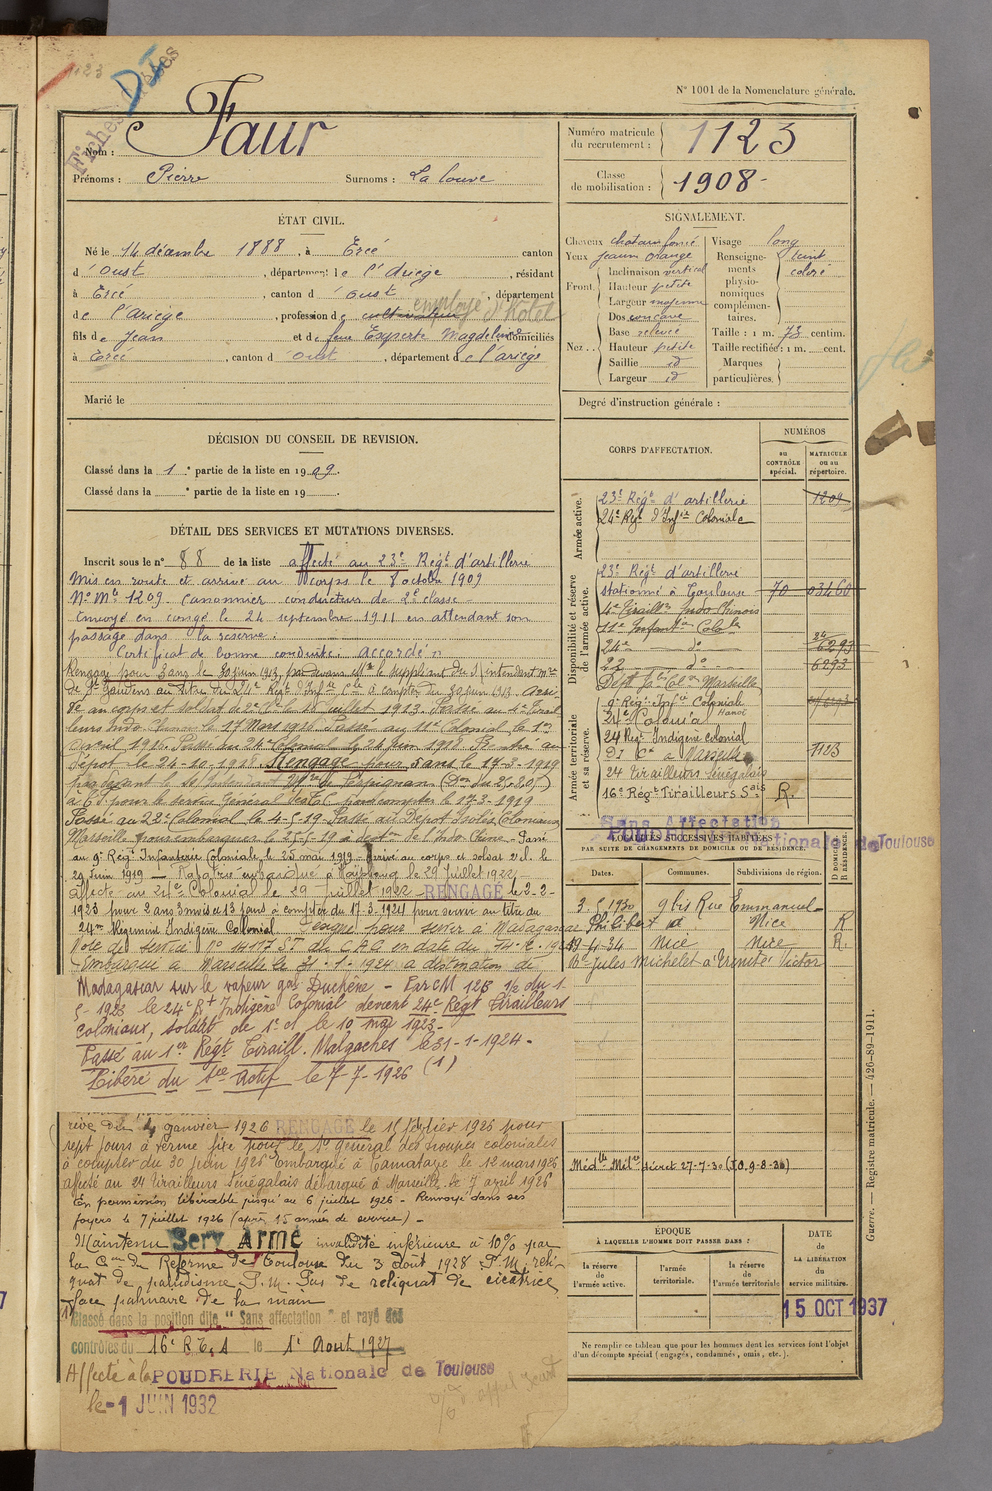 1123
Fiches
DI
N° 1001 de la Nomenclature générale.
Nom : Faur
Prénoms : Pierre Surnoms : La louve
Numéro matricule du recrutement : 1123
Classe de mobilisation : 1908
ÉTAT CIVIL.
Né le 14 décembre 1888, à Ercé canton
d'Oust, département de l'Ariège, résidant
à Ercé, canton d'Oust, département
de l'Ariège, profession de cultivateur employé d'hôtel
fils de Jean et de feue Experte Magdeleine domiciliés
à Ercé, canton d'Oust, département de l'ariège
Marié le
SIGNALEMENT.
Cheveux chatain foncé
Yeux jaune orange
Front. Inclinaison vertical
Hauteur petite
Largeur moyenne
Nez. Dos concave
Base relevée
Hauteur petite
Saillie id
Largeur id
Visage long
Renseignements physionomiques complémentaires. teint coloré
Taille : 1 m. 73 centim.
Taille rectifiée : 1 m. cent.
Marques particulières.
Degré d'instruction générale :
DÉCISION DU CONSEIL DE REVISION.
Classé dans la 1e partie de la liste en 1909.
Classé dans la e partie de la liste en 19
DÉTAIL DES SERVICES ET MUTATIONS DIVERSES.
Inscrit sous le n° 88 de la liste affecté au 23e Régt d'artillerie
Mis en route et arrivé au corps le 8 octobre 1909
N° Mle 1209. Canonnier conducteur de 2e classe
Envoyé en congé le 24 septembre 1911 en attendant son
passage dans la réserve.
Certificat de bonne conduite : accordé
Rengagé pour 3 ans le 30 juin 1913, par devant Mr le suppléant du S/Intendant mre
de St Gaudens au titre du 24e Régt d'Infie Cle à compter du 30 juin 1913. Arri-
vé au corps et soldat de 2e cl le juillet 1913. Passé au 4e Tirail-
leurs Indo Chinois le 17 Mars 1916. Passé au 11e Colonial le 1er
1916. Passé au 24 Colonial le 24 juin 1918. au
Dépôt le 24-10-1918. Rengagé pour 5 ans le 17-3-1919
par devant le Intendant Mre de Perpignan
à Cl pour le service Général pour compter du 17-3-1919
Passé au 22e Colonial le 4-5-19. Passé au Dépot Isolés Coloniaux
Marseille pour embarquer le 25-5-19 à deston de l'Indo-Chine. Passé
au 9e Régt Infanterie Coloniale le 25 mai 1919. Arrivé au corps et soldat 2e cl. le
29 juin 1919 — Rapatrié embarqué à le 29 juillet 1922
affecté au 24e Colonial le 29 juillet 1922 RENGAGÉ le 2-2-
1923 pour 2 ans 3 mois et 13 jours à compter du 17-3-1924 pour servir au titre du
24me Régiment Indigène Colonial Désigné pour servir à Madagascar
Note de service N° 14117 ST du C.A.C. en date du
Embarqué à Marseille le 31-1-1924 à destination de
Madagascar sur le vapeur gal Duchêne - Par CM 123 1/2 du 1-
5-1923 le 24e Rt Indigène Colonial devient 24e Régt Tirailleurs
coloniaux, soldat de 1e cl le 10 mai 1923-
Passé au 1er Régt Tiraill. Malgaches le 31-1-1924-
Libéré du Sce Actif le 7-7-1926 (1)
4 janvier 1926 RENGAGÉ le 15 février 1926 pour
sept jours à terme fixe pour le Sce Général des troupes coloniales
à compter du 30 juin 1926 Embarqué à Tamatave le 12 mars 1926
affecté au 24 Tirailleurs Sénégalais débarqué à Marseille le 7 avril 1926
En permission libérable jusqu'au 6 juillet 1926 - Renvoyé dans ses
foyers le 7 juillet 1926 (après 15 années de service) -
Maintenu Serv Armé invalidité inférieure à 10% par
la Con de Réforme de Toulouse du 3 Aout 1928 P.M. reli-
quat de paludisme P.M. Pas de reliquat de cicatrice
face palmaire de la main
Classé dans la position dite "Sans affectation" et rayé des
contrôles du 16e R.T.S le 1e Aout 1927
Affecté à la POUDRERIE Nationale de Toulouse
le -1 JUIN 1932
CORPS D'AFFECTATION.
NUMÉROS
au CONTRÔLE spécial.
MATRICULE ou au répertoire.
Armée active.
23e Régt d'artillerie 1209
24e Régt d'Infie Coloniale
Disponibilité et réserve de l'armée active.
23e Régt d'artillerie
stationné à Toulouse 70 03460
4e Tirailleurs Indo Chinois
11e Infanterie Cole
24e —d°— 6293
22 —d°— 6293
Dépôt Marseille
Armée territoriale et sa réserve.
9e Régt Infie Coloniale Hanoï
24e Colonial
24 Régt Indigène colonial
DI C à Marseille 1123
24 Tirailleurs Sénégalais
16e Régt Tirailleurs Sais R.
Sans Affectation
POUDRERIE Nationale de Toulouse
LOCALITÉS SUCCESSIVES HABITÉES
PAR SUITE DE CHANGEMENTS DE DOMICILE OU DE RÉSIDENCE.
Dates. Communes. Subdivisions de région. D DOMICILE R RÉSIDENCE.
3.5.1930 9 bis Rue Emmanuel-
Philibert à Nice R
19-4-34 Nice Nice R.
Bd Jules Michelet à Trinité Victor
Médlle Milre décret 27-7-30 (J.O. 9-8-30)
ÉPOQUE
À LAQUELLE L'HOMME DOIT PASSER DANS :
la réserve de l'armée active.
l'armée territoriale.
la réserve de l'armée territoriale
DATE de LA LIBÉRATION du service militaire.
15 OCT 1937
Ne remplir ce tableau que pour les hommes dont les services font l'objet
d'un décompte spécial (engagés, condamnés, omis, etc.).
Guerre. — Registre matricule. — 426-89-1911.